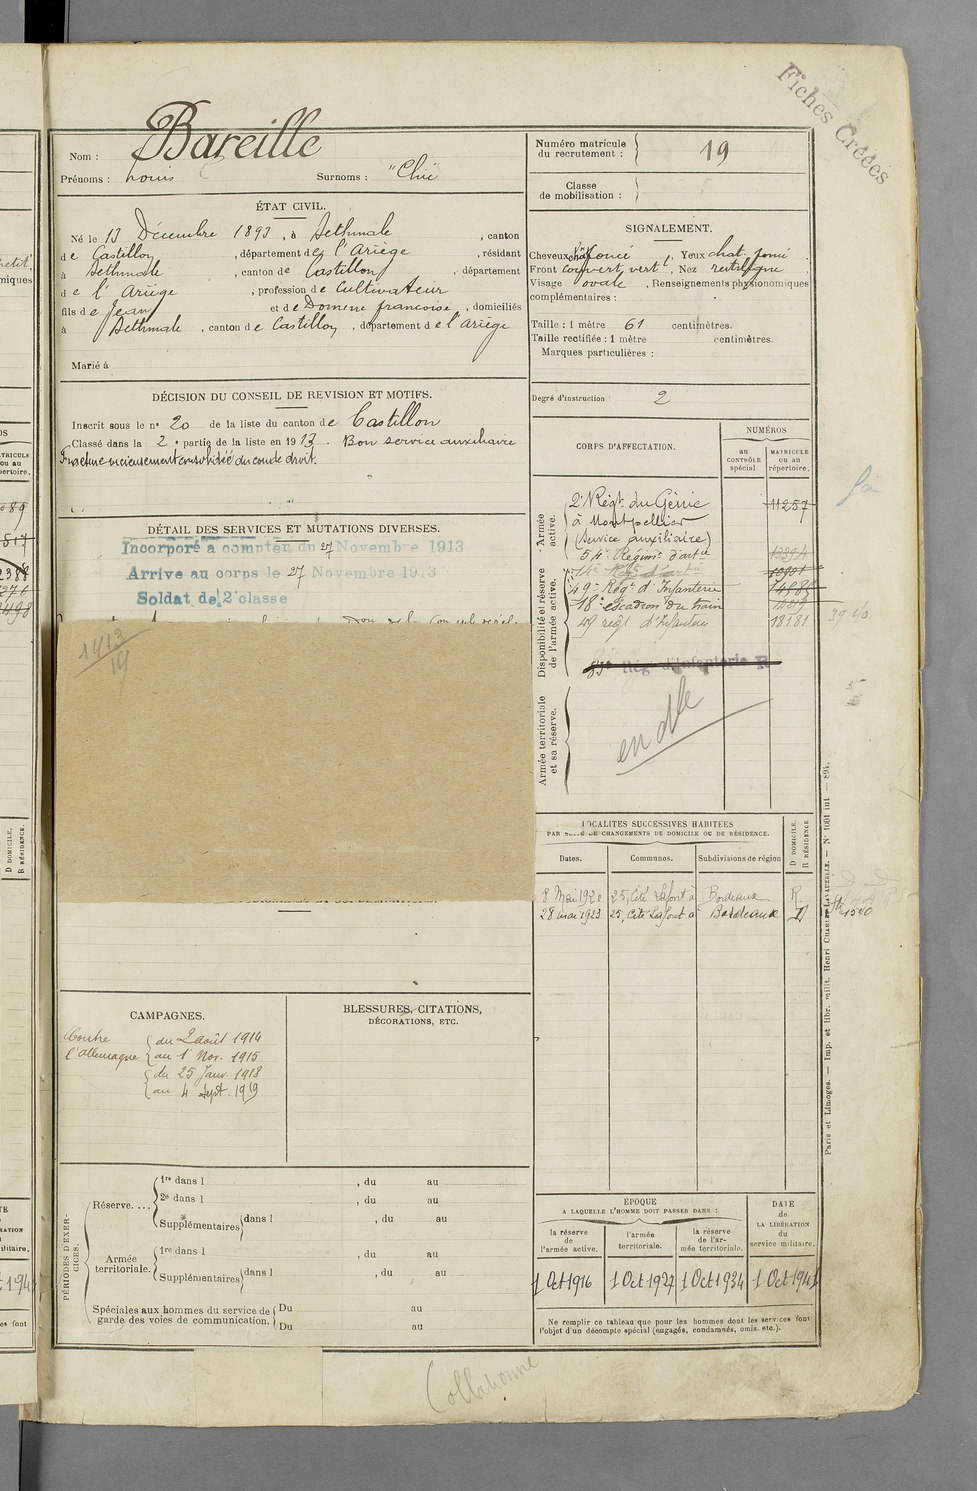 Fiches Créées
Nom : Bareille
Prénoms : Louis Surnoms : "Chii"
Numéro matricule du recrutement : 19
Classe de mobilisation :
ÉTAT CIVIL.
Né le 13 Décembre 1893, à Bethmale, canton
de Castillon, département de l'Ariège, résidant
à Bethmale, canton de Castillon, département
de l'Ariège, profession de Cultivateur
fils de Jean et de Domenc françoise, domiciliés
à Bethmale, canton de Castillon, département de l'Ariège
Marié à
SIGNALEMENT.
Cheveux chat foncé, Yeux chat. foncé
Front couvert, vert l, Nez rectiligne
Visage ovale, Renseignements physionomiques
complémentaires :
Taille : 1 mètre 61 centimètres.
Taille rectifiée : 1 mètre centimètres.
Marques particulières :
Degré d'instruction : 2
DÉCISION DU CONSEIL DE REVISION ET MOTIFS.
Inscrit sous le n° 20 de la liste du canton de Castillon
Classé dans la 2e partie de la liste en 1913. Bon service auxiliaire
Fracture vicieusement consolidée du coude droit.
DÉTAIL DES SERVICES ET MUTATIONS DIVERSES.
Incorporé à compter du 27 Novembre 1913
Arrivé au corps le 27 Novembre 1913
Soldat de 2e classe
1913
19
CORPS D'AFFECTATION.
NUMÉROS
au CONTRÔLE spécial.
MATRICULE ou au répertoire.
Armée active.
2e Régt du Génie 11257
à Montpellier
(Service auxiliaire)
54e Régimt d'artie
Disponibilité et réserve de l'armée active.
14e Régt d'artie
49e Régt d'Infanterie
18e escadron du train
49 régt d'Infanterie 18181
Rég d'Infanterie R
Armée territoriale et sa réserve.
en dle
LOCALITÉS SUCCESSIVES HABITÉES
PAR SUITE DE CHANGEMENTS DE DOMICILE OU DE RÉSIDENCE.
Dates. Communes. Subdivisions de région
D DOMICILE. R RÉSIDENCE.
8 Mai 1920 25, Cité Lafont à Bordeaux R
28 mai 1923 25, Cité Lafont à Bordeaux D
CAMPAGNES.
Contre l'allemagne
du 2 août 1914
au 1 Nov. 1915
du 25 Janv. 1918
au 4 Sept. 1919
BLESSURES, CITATIONS,
DÉCORATIONS, ETC.
PÉRIODES D'EXERCICES.
Réserve....
1re dans l , du au
2e dans l , du au
Supplémentaires dans l , du au
Armée territoriale.
1re dans l , du au
Supplémentaires dans l , du au
Spéciales aux hommes du service de garde des voies de communication.
Du au
Du au
ÉPOQUE
A LAQUELLE L'HOMME DOIT PASSER DANS :
la réserve de l'armée active.
l'armée territoriale.
la réserve de l'armée territoriale.
DATE de LA LIBÉRATION du service militaire.
1 Oct 1916 1 Oct 1927 1 Oct 1934 1 Oct 1941
Ne remplir ce tableau que pour les hommes dont les services font
l'objet d'un décompte spécial (engagés, condamnés, omis, etc.).
Paris et Limoges. — Imp. et libr. milit. Henri CHARLES-LAVAUZELLE. — N° 1001 int
Collationné